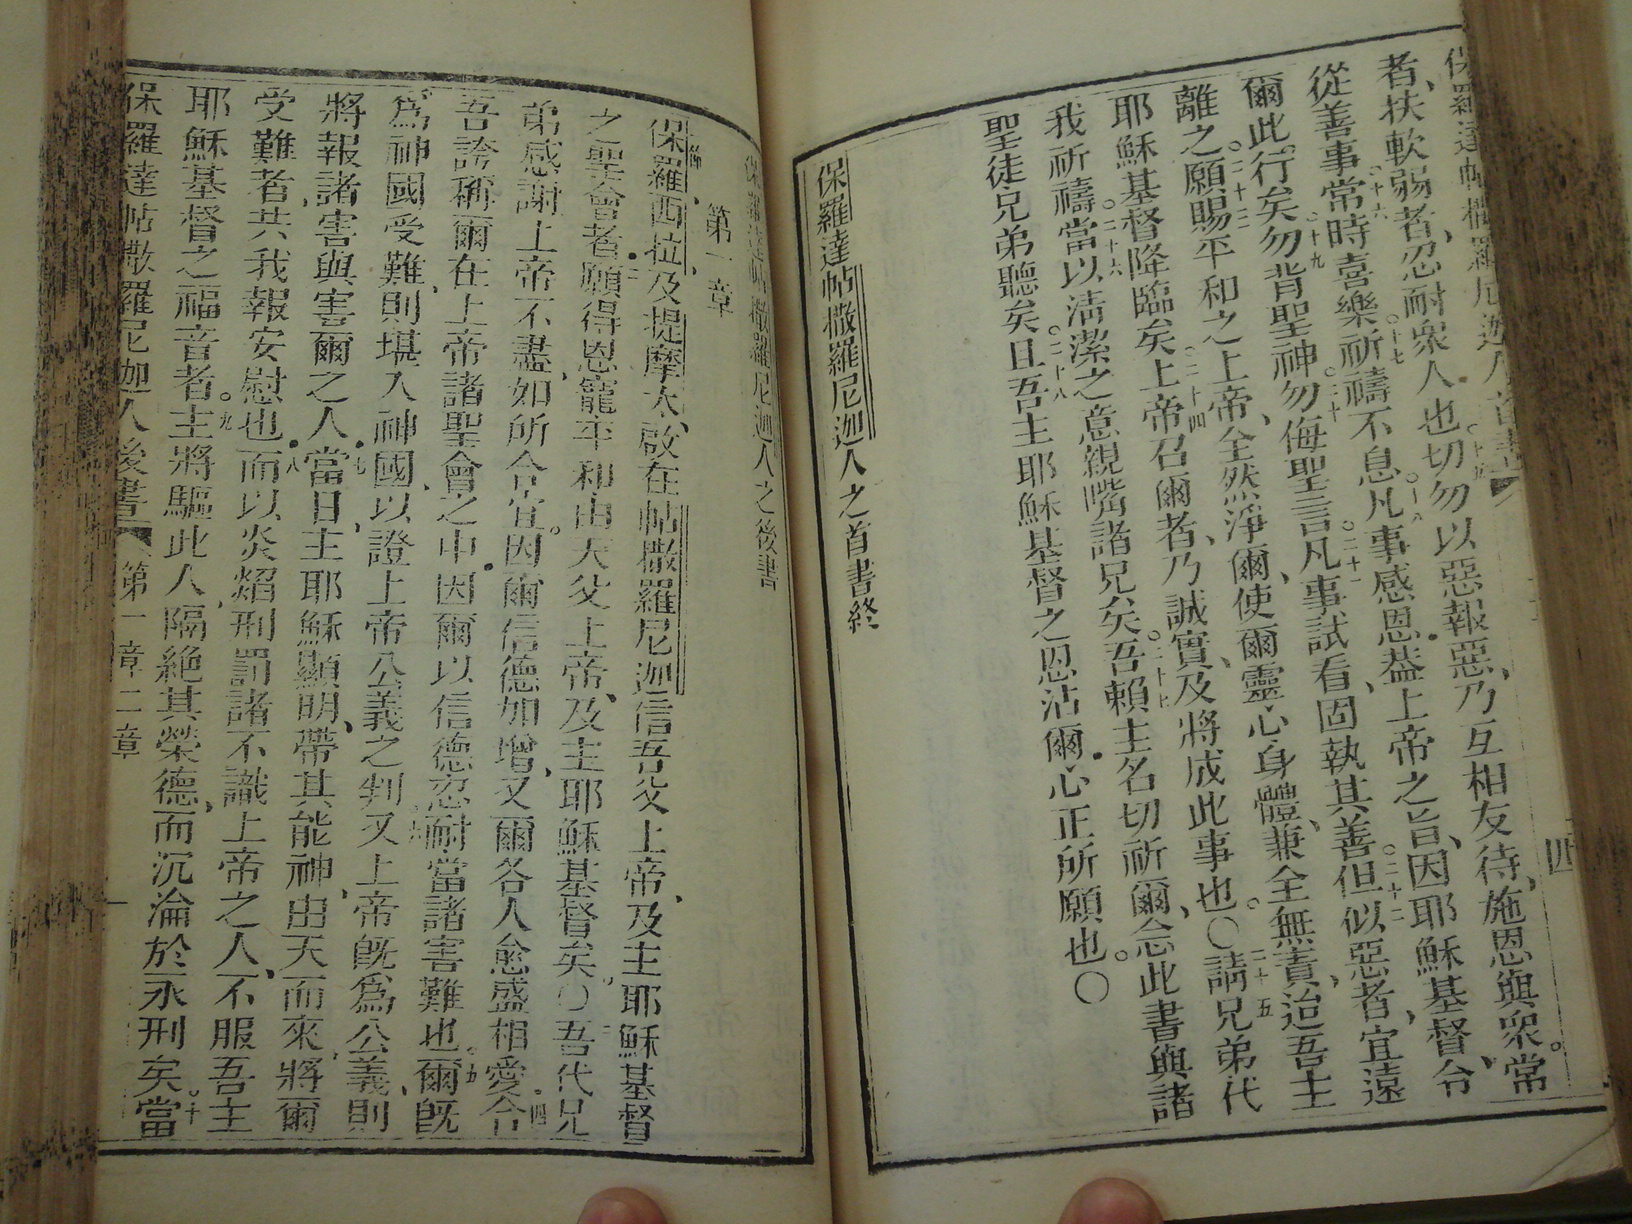 保羅達帖撒羅尼迦人首書 四
者、扶軟弱者、忍耐衆人也切勿以惡報惡、乃互相友待、施恩與衆。常
從善事常時喜樂祈禱不息凡事感恩葢上帝之旨、因耶穌基督、令
爾此。行矣勿背聖神勿侮聖言凡事試看、固執其善但似惡者、宜遠
離之願賜平和之上帝、全然淨爾、使爾靈心身體、兼全無責、迨吾主
耶穌基督降臨矣上帝召爾者、乃誠實、及將成此事也。〇請兄弟代
我祈禱當以清潔之意親嘴諸兄矣。吾賴主名切祈爾、念此書與諸
聖徒兄弟聽矣且吾主耶穌基督之恩沾爾心正所願也。〇
保羅達帖撒羅尼迦人之首書終
保羅達帖撒羅尼迦人之後書
第一章
保羅西拉、及提摩太、啟在帖撒羅尼迦信吾父上帝、及主耶穌基督
之聖會者願得恩寵平和由天父上帝、及主耶穌基督矣。〇吾代兄
弟感謝上帝不盡、如所合宜。因爾信德加增、又爾各人愈盛相愛令
吾誇稱爾在上帝諸聖會之中因爾以信德忍耐當諸害難也。爾旣
爲神國受難、則堪入神國、以證上帝公義之判又上帝旣爲公義、則
將報諸害與害爾之人當日、主耶穌顯明、帶其能神、由天而來、將爾
受難者、共我報安慰也而以炎焰刑罰諸不識上帝之人、不服吾主
耶穌基督之福音者。主將驅此人、隔絶其榮德、而沉淪於永刑矣。當
保羅達帖撒羅尼迦人後書 第一章二章 一